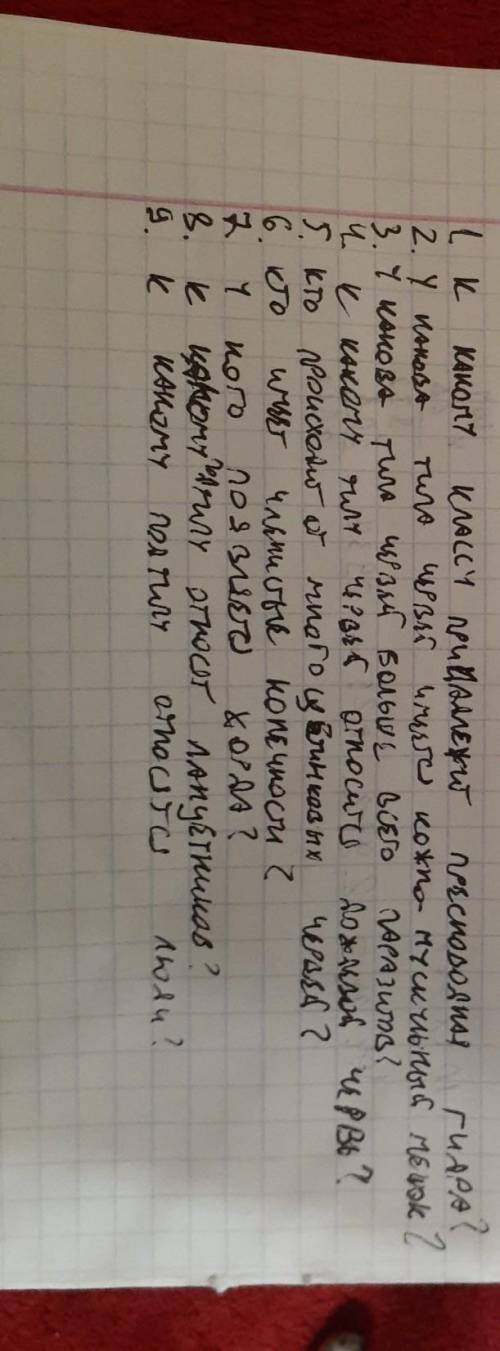 1. К какому классу принадлежит пресноводная гидра?
2. У какова типа червей имеется кожно-мускульный мешок?
3. У какова типа червей больше всего паразитов?
4. К какому типу червей относится дождевой червь?
5. кто происходит от многощетинковых червей?
6. кто имеет членистые конечности?
7. У кого появляется хорда?
8. К какому подтипу относят ланцетников?
9. К какому подтипу относятся люди?